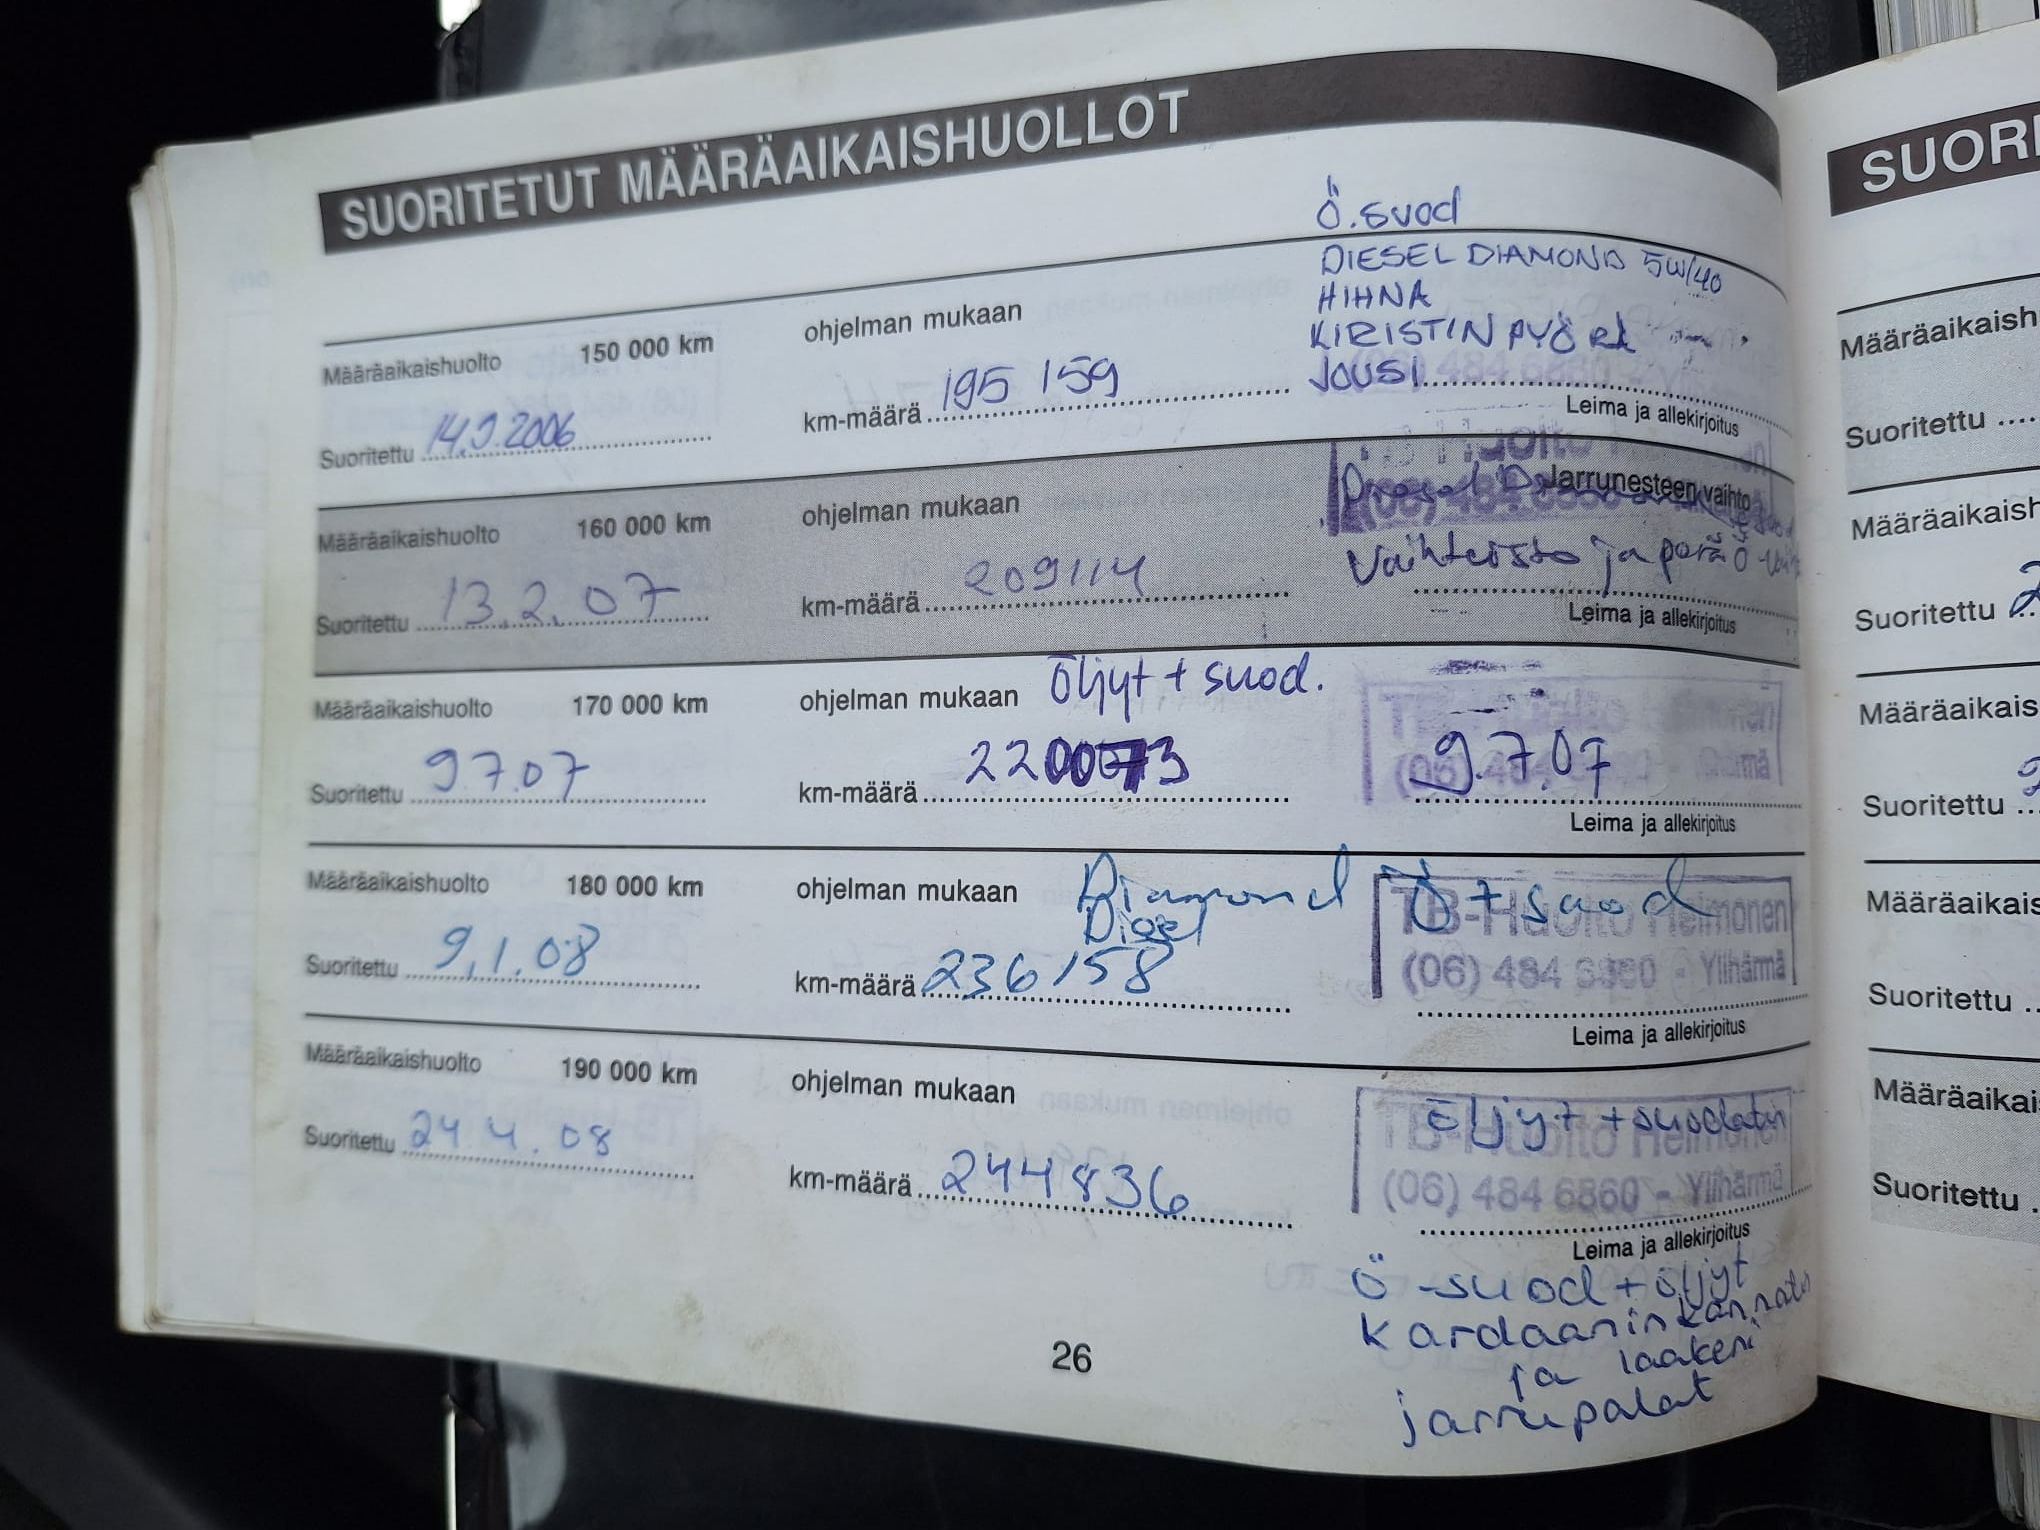 SUORITETUT MÄÄRÄAIKAISHUOLLOT
Ö.suod
DIESEL DIAMOND 5W/40
HIHNA
KIRISTINPYÖRÄ
JOUSI
Määräaikaishuolto 150 000 km ohjelman mukaan
Suoritettu 14.9.2006 km-määrä 195 159
Leima ja allekirjoitus
Määräaikaishuolto 160 000 km ohjelman mukaan Jarrunesteen vaihto
Vaihteisto ja perä Ö
Suoritettu 13.2.07 km-määrä 209114
Leima ja allekirjoitus
Määräaikaishuolto 170 000 km ohjelman mukaan Öljyt + suod.
Suoritettu 9.7.07 km-määrä 220073 9.7.07
Leima ja allekirjoitus
Määräaikaishuolto 180 000 km ohjelman mukaan Diamond Ö + suod
TB-Huolto Heimonen
(06) 484 6860 - Ylihärmä
Suoritettu 9.1.08 km-määrä 236158
Leima ja allekirjoitus
Määräaikaishuolto 190 000 km ohjelman mukaan
Öljyt + suodatin
TB-Huolto Heimonen
(06) 484 6860 - Ylihärmä
Suoritettu 24.4.08 km-määrä 244836
Leima ja allekirjoitus
Ö-suod + öljyt
kardaanin kannatus
ja laakeri
jarrupalat
26
SUORI
Määräaikaish
Suoritettu
Määräaikaish
Suoritettu
Määräaikais
Suoritettu
Määräaikais
Suoritettu
Määräaikai
Suoritettu